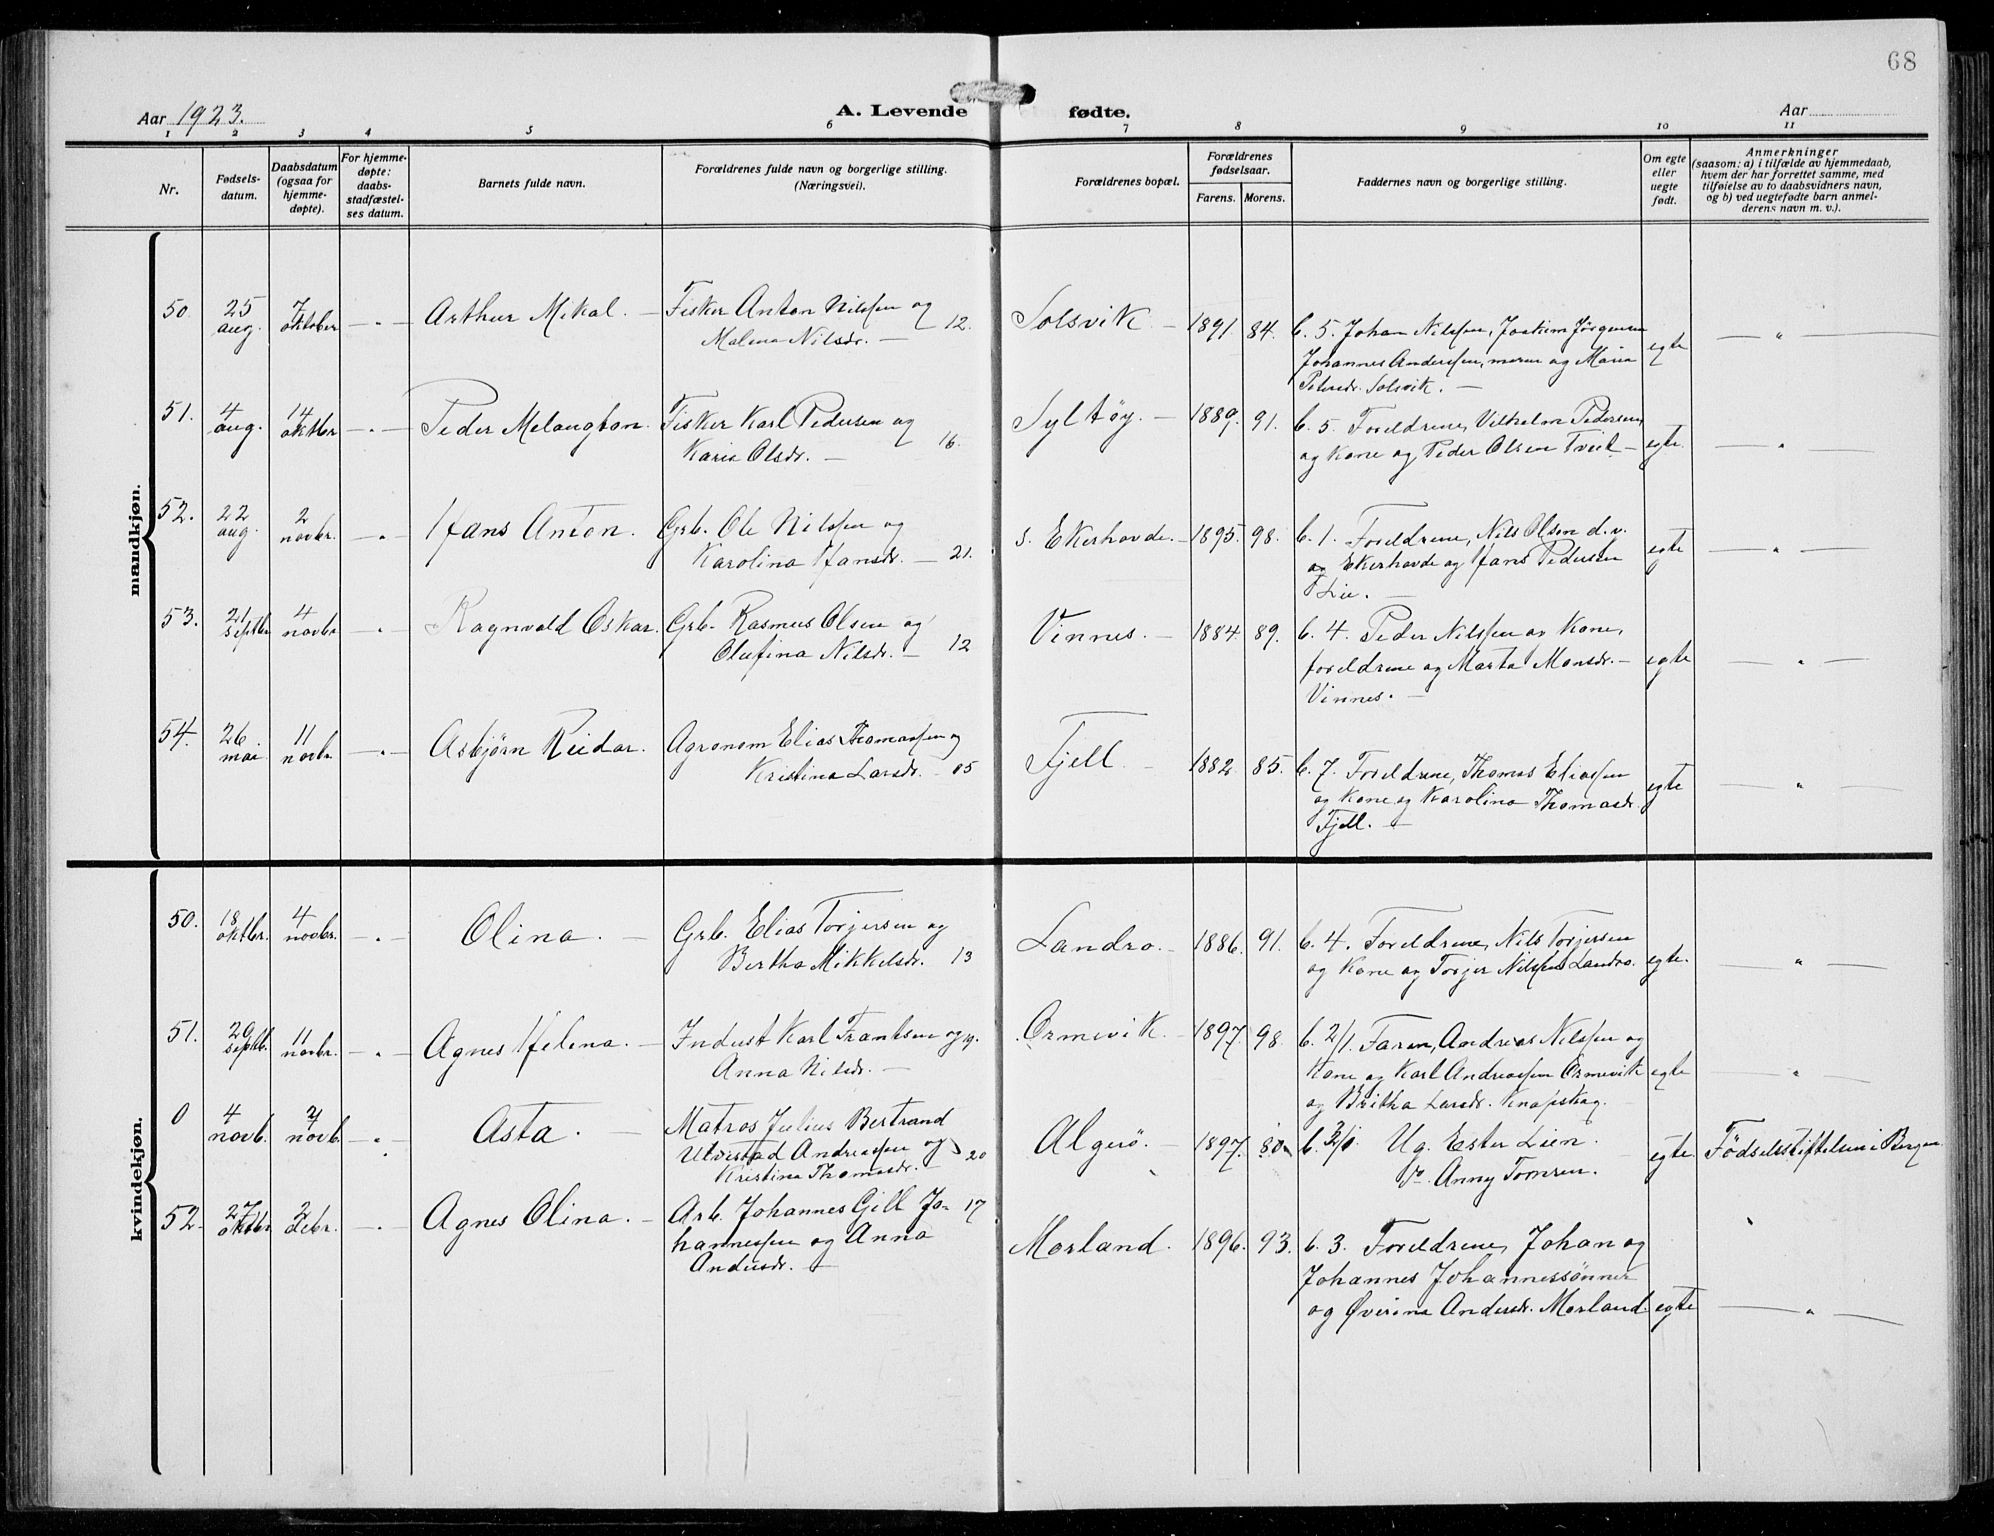 68
Aar 1923.
A. Levende fødte.
Aar
1 2 3 4 5 6 7 8 9 10 11
Nr.
Fødsels-
datum.
Daabsdatum
(ogsaa for
hjemme-
døpte).
For hjemme-
døpte:
daabs-
stadfæstel-
ses datum.
Barnets fulde navn.
Forældrenes fulde navn og borgerlige stilling.
(Næringsvei).
Forældrenes bopæl.
Forældrenes
fødselsaar.
Farens. Morens.
Faddernes navn og borgerlige stilling.
Om egte
eller
uegte
født.
Anmerkninger
(saasom: a) i tilfælde av hjemmedaab,
hvem der har forrettet samme, med
tilføielse av to daabsvidners navn,
og b) ved uegtefødte barn anmel-
derens navn m. v.).
mandkjøn.
50. 25 aug. 7 oktober - „ - Arthur Mikal. - Fisker Anton Nilssen og
Malena Nilsdr. - 12. Solsvik - 1891. 84. b. 5. Johan Nilssen, Joakim Jørgensen
Johannes Anderssen, moren og Maria
Petersdr. Solsvik. - egte - „ -
51. 4 aug. 14 oktbr - „ - Peder Melangton. Fisker Karl Pedersen og
Karia Olsdr. - 16. Syltøy. - 1889. 91. b. 5. Foreldrene, Vilhelm Pedersen,
og Kone og Peder Olsen Tveit - egte. - „ -
52. 22 aug. 2 novbr. - „ - Hans Anton. Grb. Ole Nilssen og
Karolina Hansdr. - 21. s. Ekerhovde. - 1895. 98. b. 1. Foreldrene, Nils Olsen d.v.
og Ekerhovde og Hans Pedersen
Lie. - egte - „ -
53. 21 septbr 4 novbr - „ - Ragnvald Oskar. Grb. Rasmus Olsen og
Olufina Nilsdr. - 12 Vinnes. - 1884. 89. b. 4. Peder Nilssen og Kone,
foreldrene og Marta Monsdr. -
Vinnes. - egte - „ -
54. 26 mai 11 novbr - „ - Asbjørn Reidar. Agronom Elias Thomassen og
Kristina Larsdr. - 05 Fjell - 1882. 85. b. 7. Foreldrene, Thomas Eliassen
og Kone og Karolina Thomasdr.
Fjell. - egte - „ -
kvindekjøn.
50. 18 oktbr. 4 novbr. - „ - Olina. - Grb. Elias Torjersen og
Bertha Mikkelsdr. 13 Landro. - 1886. 91. b. 4. Foreldrene, Nils Torjersen
og Kone og Torjer Nilssen Landro. egte. - „ -
51. 29 septb. 11 novbr. - „ - Agnes Helena. - Indust Karl Frantsen og 19.
Anna Nilsdr. - Ormevik - 1897. 98. b. 2/1. Faren, Andreas Nilssen og
Kone og Karl Andreassen Ormevik
og Britha Larsdr. Knapskog. - egte - „ -
0 4 novb. 7 novb. - „ - Asta. - Matros Julius Bertrand
Ulvestad Andreassen og
Kristina Thomasdr. - 20 Algerø. - 1897. b. 2/0 Ug. Ester Lien.
Do. Anny Tomsen. egte. Fødselsstiftelsen i Bergen.
52. 27 oktbr 2 debr. - „ - Agnes Olina. - Arb. Johannes Gill Jo- 17
hannessen og Anna
Andersdr. - Morland. 1896. 93. b. 3. Foreldrene, Johan og
Johannes Johannessønner
og Øverina Andersdr. Morland. egte - „ -